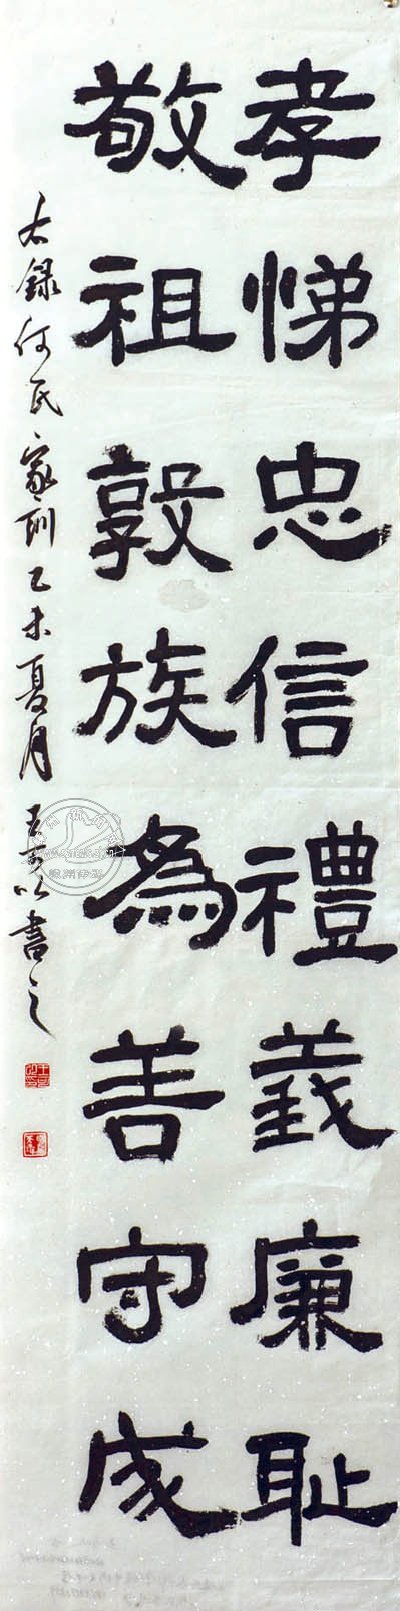 孝悌忠信禮義廉恥
敬祖敦族為善守成
右錄何氏家訓乙未夏月
書之